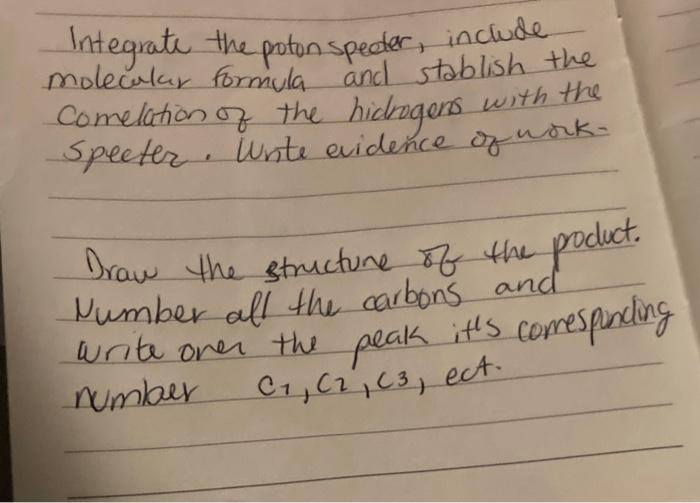 Integrate the poton specter, include
molecular formula and stablish the
Comelation of the hidrogens with the
specter. Write evidence of work.
Draw the structure of the product.
Number all the carbons and
write over the peak it's corresponding
number C1, C2, C3, ect.